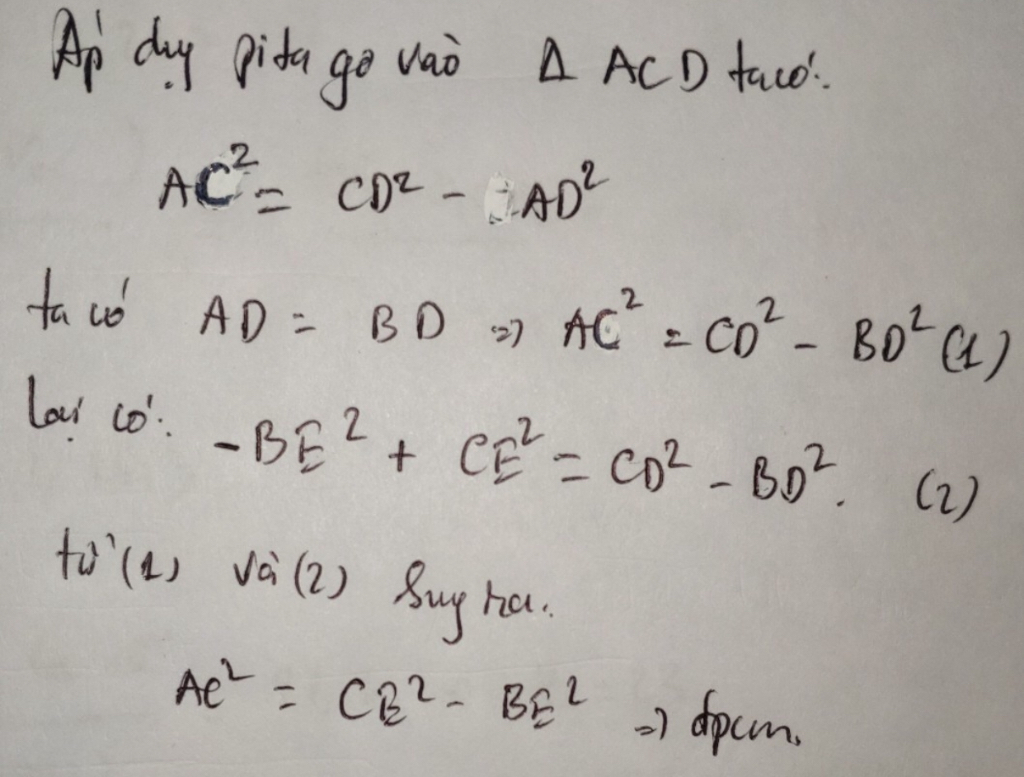 Áp dụg pitago vào Δ ACD ta có:
AC² = CD² - AD²
ta có AD = BD => AC² = CD² - BD² (1)
lại có: -BE² + CE² = CD² - BD². (2)
từ (1) và (2) Suy ra.
AC² = CE² - BE² => đpcm.